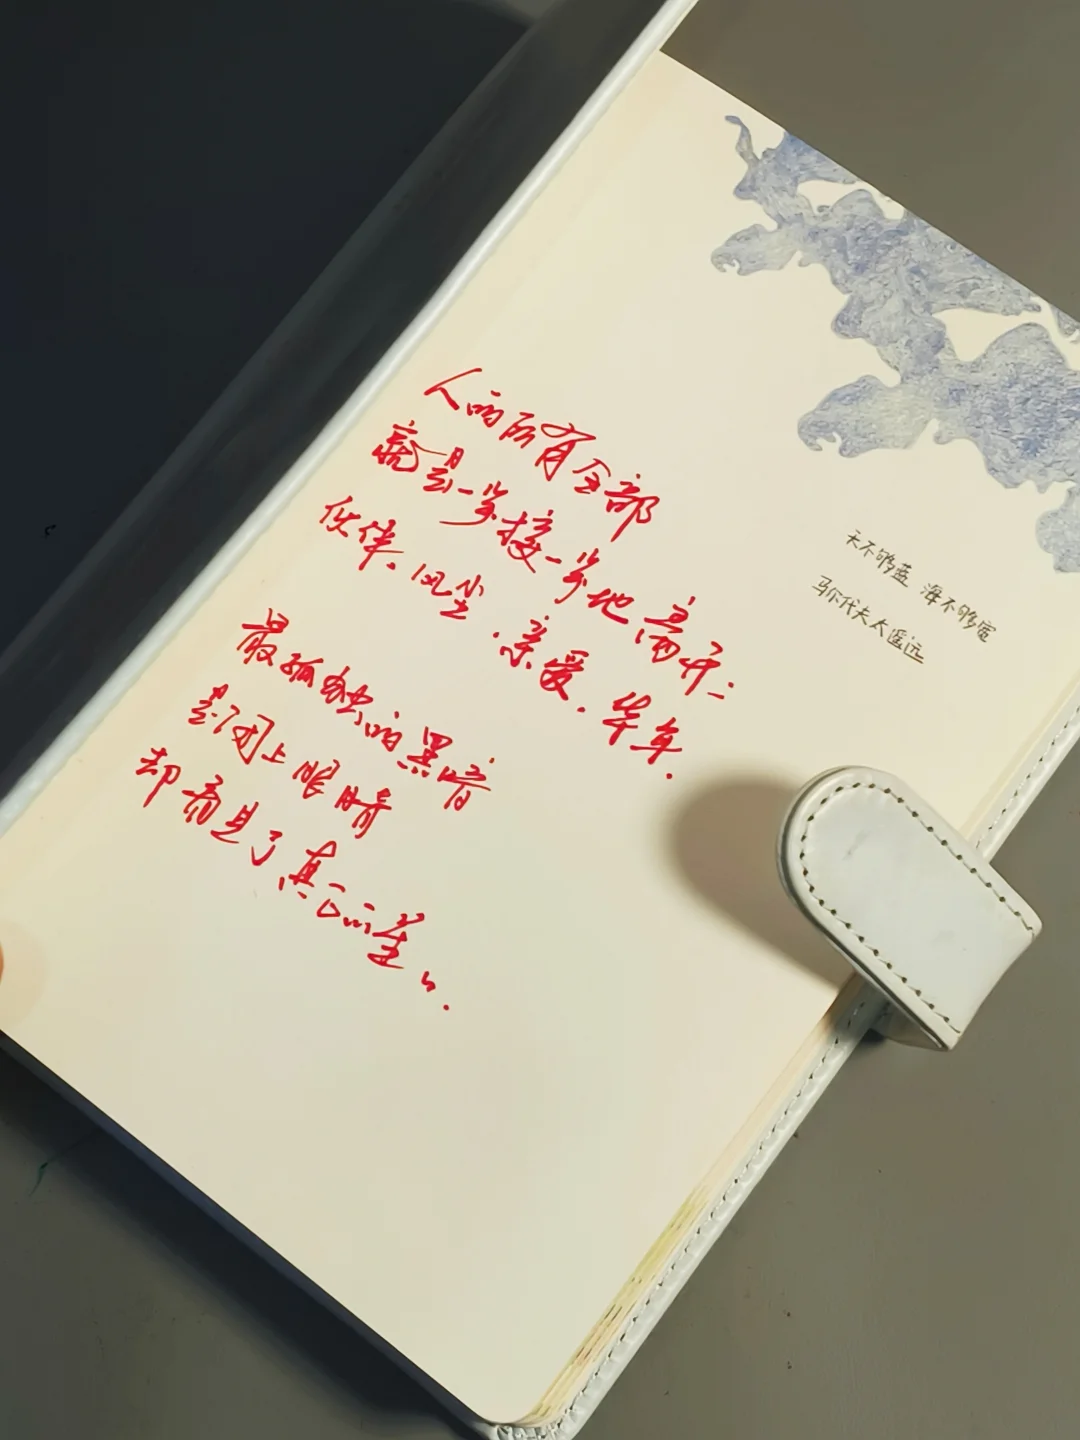 人的所有全部
就是一岁接一岁地离开：
伙伴、风尘、亲爱、华年.
最孤独的黑暗
是闭上眼睛
却看见了真
天不够蓝 海不够宽
马尔代夫太遥远